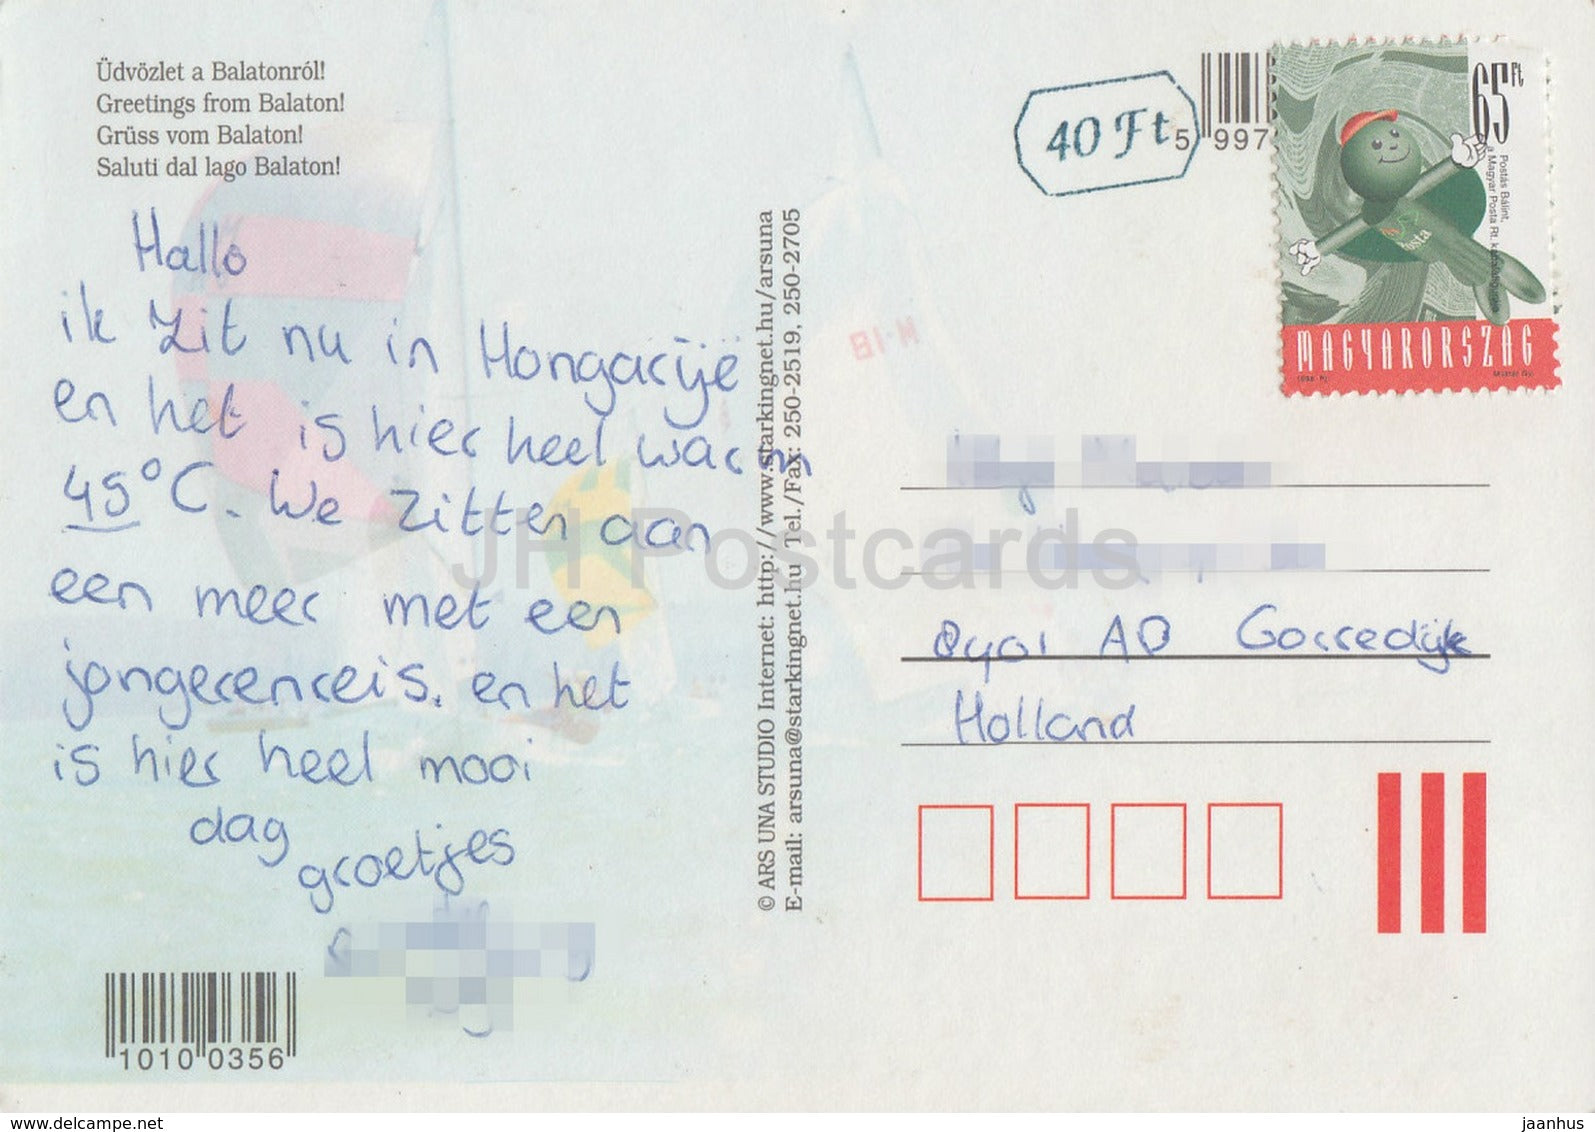 Üdvözlet a Balatonról!
Greetings from Balaton!
Grüss vom Balaton!
Saluti dal lago Balaton!
Hallo
ik zit nu in Hongarijë
en het is hier heel warm
45°C. We zitten aan
een meer met een
jongerenreis. en het
is hier heel mooi
dag
groetjes
1010 0356
© ARS UNA STUDIO Internet: http://www.starkingnet.hu/arsuna
E-mail: arsuna@starkingnet.hu Tel./Fax: 250-2519, 250-2705
40 Ft
5 997
65 Ft
Postás Bálint,
a Magyar Posta Rt.
Posta
MAGYARORSZÁG
8401 AD Gorredijk
Holland
JH Postcards
www.delcampe.net
jaanhus